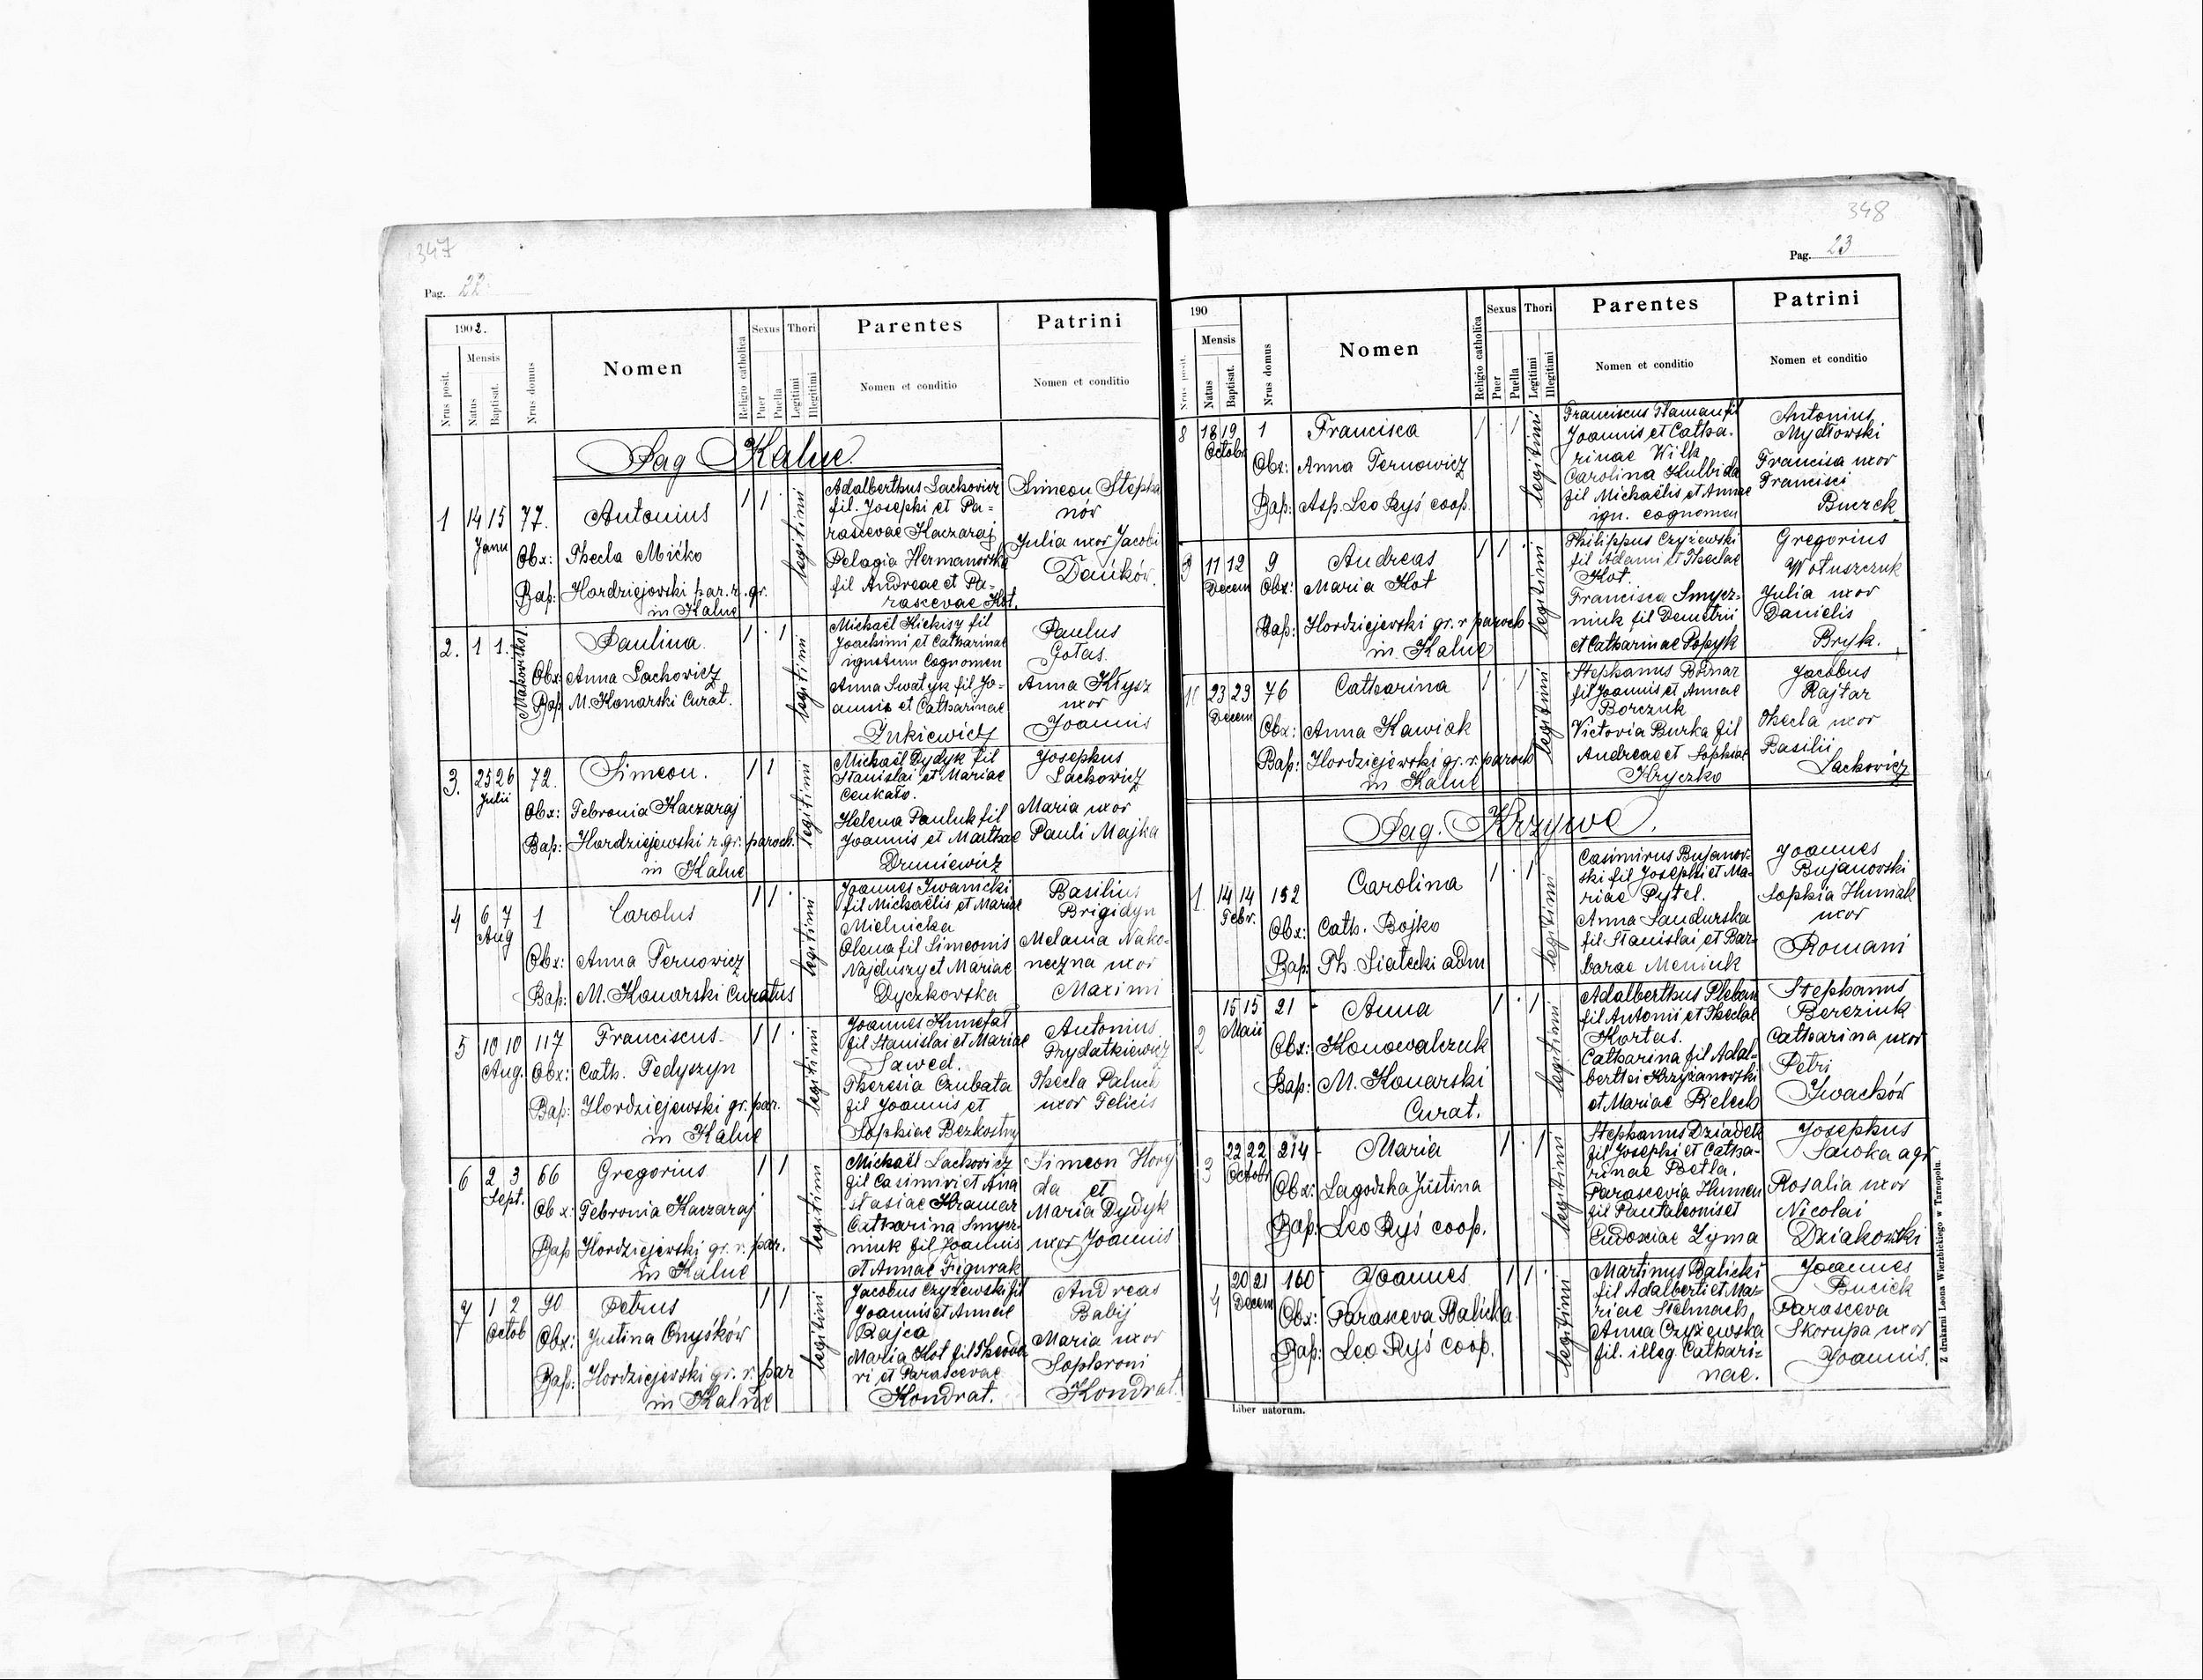 347
Pag. 22
1902.
Nrus posit.
Mensis
Natus
Baptisat.
Nrus domus
Nomen
Religio catholica
Sexus
Puer
Puella
Thori
Legitimi
Illegitimi
Parentes
Nomen et conditio
Patrini
Nomen et conditio
Pag Kalne.
1 14 15 77. Antonius 1 1 · legitimi
Janu
Obx: Thecla Mićko
Bap: Hordziejowski par. r. gr.
in Kalne
Adalbertus Lachovicz
fil. Josephi et Pa-
rascevae Kaczaraj
Pelagia Hermanowska
fil Andreae et Pa-
rascevae Kot.
Simeon Stepha
nor
Julia uxor Jacobi
Dańków.
2. 1 1. Paulina. 1 · 1 legitimi
Obx: Anna Lachovicz
Bap M. Konarski Curat.
Michaël Kiekisz fil
Joachimi et Catharinae
ignotum Cognomen
Anna Swatyk fil Jo-
annis et Catharinae
Jukiewicz
Paulus
Gołas.
Anna Kłysz
uxor
Joannis
3. 25 26 72. Simeon. 1 1 legitimi
Julii
Obx: Febronia Kaczaraj
Bap: Hordziejewski r. gr. paroch.
in Kalne
Michaël Dydyk fil
Stanislai et Mariae
Cenkało.
Helena Pauluk fil
Joannis et Marthae
Druniewicz
Josephus
Lachowicz
Maria uxor
Pauli Majka
4 6 7 1 Carolus 1 1 · legitimi
Aug
Obx: Anna Ternowicz
Bap: M. Konarski Curatus
Joannes Iwanicki
fil Michaëlis et Mariae
Mielnicka
Olena fil Simeonis
Najduszy et Mariae
Dyczkovska
Basilius
Brigidyn
Melania Nako-
neczna uxor
Maximi
5 10 10 117 Franciscus 1 1 · legitimi
Aug. Obx: Cath. Fedyszyn
Bap: Hordziejewski gr. par.
in Kalne
Joannes Hunefał
fil Stanislai et Mariae
Sawed.
Theresia Czubata
fil Joannis et
Sophiae Bezkostny
Antonius
Prydatkiewicz
Thecla Paluch
uxor Felicis
6 2 3 66 Gregorius 1 1 legitimi
Sept.
Obx: Febronia Kaczaraj
Bap Hordziejewski gr. r. par.
in Kalne
Michaël Lachovicz
fil Casimiri et Ana
stasiae Kramar
Catharina Smycz-
niuk fil Joannis
et Annae Figurak
Simeon Hory
da et
Maria Dydyk
uxor Joannis
7 1 2 90 Petrus 1 1 legitimi
Octob Obx: Justina Onyśków
Bap: Hordziejewski gr. r. par
in Kalne
Jacobus Czyżewski fil
Joannis et Annae
Rajca
Maria Kot fil Theodo
ri et Parascevae
Kondrat.
Andreas
Babij
Maria uxor
Sophroni
Kondrat.
348
Pag. 23
190
Nrus posit.
Mensis
Natus
Baptisat.
Nrus domus
Nomen
Religio catholica
Sexus
Puer
Puella
Thori
Legitimi
Illegitimi
Parentes
Nomen et conditio
Patrini
Nomen et conditio
8 18 19 1 Francisca 1 · 1 legitimi
Octobr
Obx: Anna Ternowicz
Bap: Asp. Leo Ryś coop.
Franciscus Flaman fil
Joannis et Catha-
rinae Wilk
Carolina Kulbida
fil Michaëlis et Annae
ign. cognomen
Antonius
Mydłowski
Francisa uxor
Francisci
Burek
9 11 12 9 Andreas 1 1 · legitimi
Decem Obx: Maria Kot
Bap: Hordziejewski gr. r paroch
in Kalne
Philippus Czyżewski
fil Adami et Theclae
Kot.
Francisca Smycz-
niuk fil Demetrii
et Catharinae Popyk
Gregorius
Wołuszczuk
Julia uxor
Danielis
Bryk.
10 23 23 76 Catharina 1 · 1 legitimi
Decem
Obx: Anna Kawiak
Bap: Hordziejewski gr. r. paroch
in Kalne
Stephanus Bodnar
fil Joannis et Annae
Borczuk
Victovia Burka fil
Andreae et Sophiae
Hryczko
Jacobus
Rajtar
Thecla uxor
Basilii
Lackovicz
Pag. Krzywe.
1. 14 14 152 Carolina 1 · 1 legitimi
Febr.
Obx: Cath. Bojko
Bap: Th. Siatecki adm
Casimirus Bujanow-
ski fil Josephi et Ma-
riae Pytel.
Anna Sandurska
fil Stanislai et Bar-
barae Meniuk
Joannes
Bujanovski
Sophia Humiak
uxor
Romani
2 15 15 21 Anna 1 · 1 legitimi
Maii
Obx: Konowalczuk
Bap: M. Konarski
Curat.
Adalberthus Pleban
fil Antonii et Theclae
Kortas.
Catharina fil Adal-
berthi Krzyżanovski
et Mariae Relech
Stephanus
Bereziuk
Catharina uxor
Petri
Iwachów
3 22 22 214 Maria 1 · 1 legitimi
Octobr
Obx: Lagodzka Justina
Bap: Leo Ryś coop.
Stephanus Dziadek
fil Josephi et Catha-
rinae Betla.
Parascevia Humen
fil Pantaleonis et
Eudoxiae Zyma
Josephus
Sawka agr
Rosalia uxor
Nicolai
Dziakowski
4 20 21 160 Joannes 1 1 · legitimi
Decem
Obx: Parasceva Balicka
Bap: Leo Ryś coop.
Martinus Balicki
fil Adalberti et Ma-
riae Stelmach,
Anna Czyżewska
fil. illeg Cathari-
nae.
Joannes
Bucick
Parasceva
Skorupa uxor
Joannis.
Liber natorum.
Z drukarni Leona Wierzbickiego w Tarnopolu.